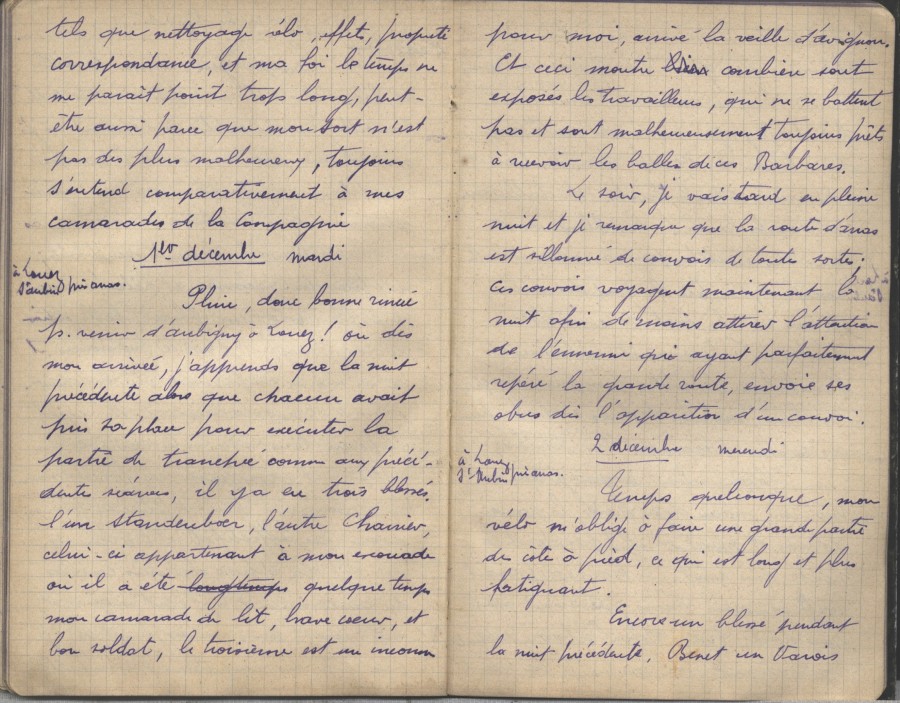 tels que nettoyage vélo, effets, propreté
correspondance, et ma foi le temps ne
me parait point trop long, peut-
être aussi parce que mon sort n'est
pas des plus malheureux, toujours
s'entend comparativement à mes
camarades de la Compagnie
1er décembre mardi
à Louez
St aubin près arras.
Pluie, donc bonne rincée
p. venir d'aubigny à Louez! où dès
mon arrivée, j'apprends que la nuit
précédente alors que chacun avait
pris sa place pour exécuter la
partie de tranchée comme aux précé-
dentes séances, il y a eu trois blessés
l'un Standenboer, l'autre Charrier,
celui-ci appartenant à mon escouade
où il a été longtemps quelque temps
mon camarade de lit, brave coeur, et
bon soldat, le troisième est un inconnu
pour moi, arrivé la veille d'avignon.
Et ceci montre bien combien sont
exposés les travailleurs, qui ne se battent
pas et sont malheureusement toujours prêts
à recevoir les balles de ces Barbares.
Le soir, je vais tard en pleine
nuit et je remarque que la route d'arras
est sillonnée de convois de toutes sortes;
ces convois voyagent maintenant la
nuit afin de moins attirer l'attention
de l'ennemi qui ayant parfaitement
repéré la grande route, envoie ses
obus dès l'apparition d'un convoi.
2 décembre mercredi
à Louez
St Aubin près arras.
Temps quelconque, mon
vélo m'oblige à faire une grande partie
de côte à pied, ce qui est long et plus
fatiguant.
Encore un blessé pendant
la nuit précédente, Benet un Varois